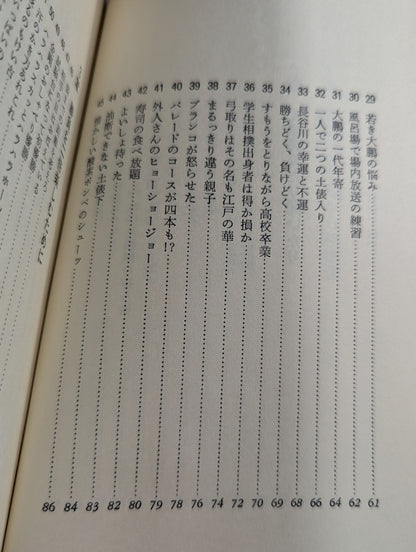 29 若き大鵬の悩み 61
30 風呂場で場内放送の練習 62
31 大鵬の一代年寄 64
32 一人で二つの土俵入り 66
33 長谷川の幸運と不運 68
34 勝ちどく、負けどく 69
35 すもうをとりながら高校卒業 70
36 学生相撲出身者は得か損か 72
37 弓取りはその名も江戸の華 74
38 まるっきり違う親子 76
39 ブランコが怒らせた 78
40 パレードのコースが四本も!? 79
41 外人さんのヒョーショージョー 80
42 寿司の食べ放題 82
43 よいしょ待った 83
44 油断できない土俵下 84
45 懐かしい酸素ボンベのシューッ 86